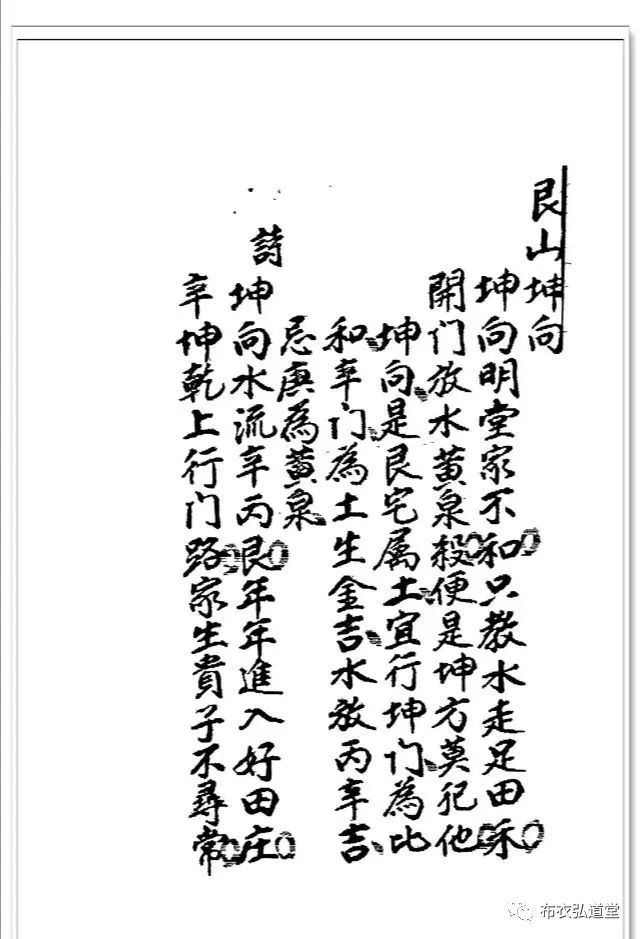 艮山坤向
坤向明堂家不和只教水走足田禾
開门放水黄泉殺便是坤方莫犯他
坤向是艮宅属土宜行坤门為比
和辛门為土生金吉水放丙辛吉
忌庚為黄泉
詩
坤向水流辛丙艮年年進入好田庄
辛坤乾上行门路家生貴子不尋常
布衣弘道堂